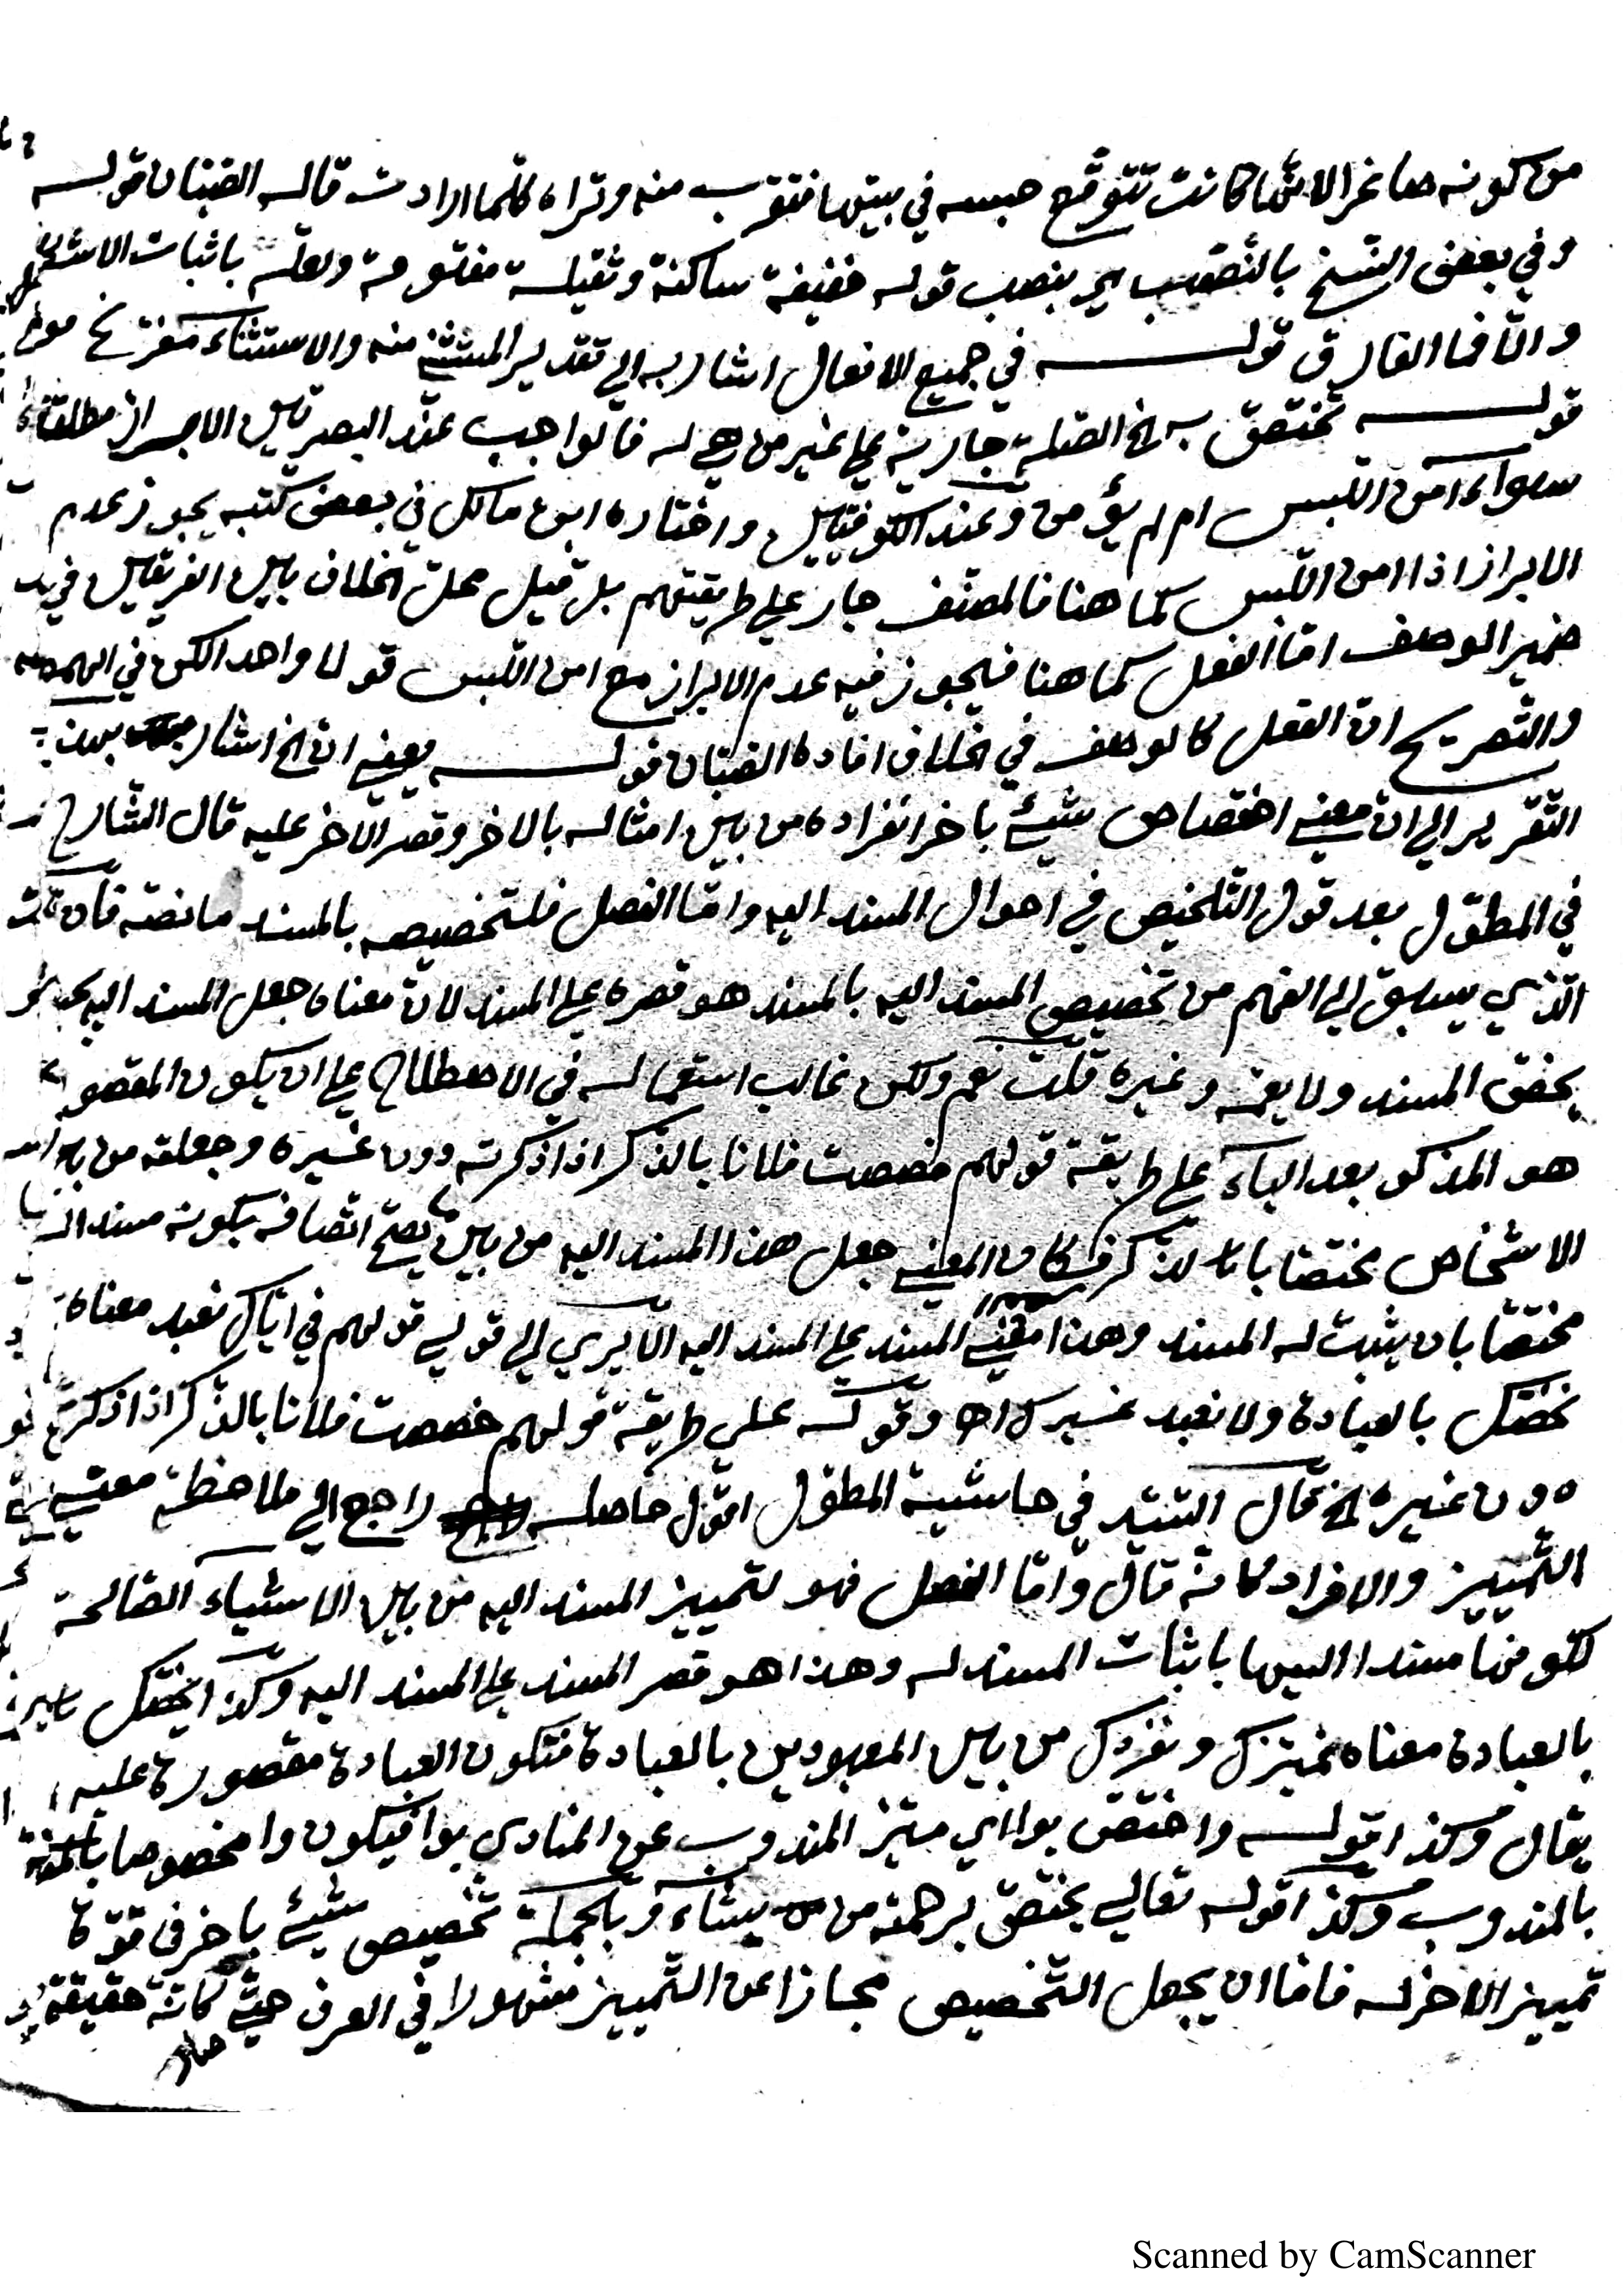 من كونه صاغرا لانها كانت تتوقع حبسه في بيتها فتقرب منه وتراه كلما ارادت قاله الصبان قوله
وفي بعض النسخ بالنصب اي بنصب قوله خفيفة ساكنة وثقيلة مفتوحة ولعله باثبات الاستعمال
والا فما الفارق قوله في جميع الافعال اشار به الي تقدير المستثني منه والاستثناء مفرغ
قوله تختص به الخ الصلة جارية علي غير من هي له فالواجب عند البصريين الابراز مطلقا
سواء امن اللبس ام لم يؤمن وعند الكوفيين واختاره ابن مالك في بعض كتبه يجوز عدم
الابراز اذا امن اللبس كما هنا فالمصنف جار علي طريقتهم بل قيل محل الخلاف بين الفريقين في
ضمير الوصف اما الفعل كما هنا فيجوز فيه عدم الابراز مع امن اللبس قولا واحدا لكن في الهمع
والتصريح ان الفعل كالوصف في الخلاف افاده الصبان قوله يعني ان الخ اشار بهذا
التقرير الي ان معني اختصاص شيئ باخر انفراده من بين امثاله بالاخر وقصر الاخر عليه قال الشارح
في المطول بعد قول التلخيص في احوال المسند اليه واما الفصل فلتخصيصه بالمسند ما نصه فان قلت
الذي يسبق الي الفهم من تخصيص المسند اليه بالمسند هو قصره علي المسند لان معناه جعل المسند اليه بحيث
يخص المسند ولا يعمه وغيره قلت نعم ولكن غالب استعماله في الاصطلاح علي ان يكون المقصور
هو المذكور بعد الباء علي طريقة قولهم خصصت فلانا بالذكر اذا ذكرته دون غيره وجعلته من بين
الاشخاص مختصا بالذكر فكان المعني جعل هذا المسند اليه من بين ما يصح اتصافه بكونه مسندا اليه
مختصا بان يثبت له المسند وهذا معني قصر المسند علي المسند اليه الا يري الي قولهم في اياك نعبد معناه
نخصك بالعبادة ولا نعبد غيرك اه وقوله علي طريقة قولهم خصصت فلانا بالذكر اذا ذكرته
دون غيره الخ قال السيد في حاشية المطول اقول حاصله راجع الي ملاحظة معني
التمييز والافراد كانه قال واما الفصل فهو لتمييز المسند اليه من بين الاشياء الصالحة
لكونها مسندا اليها باثبات المسند له وهذا هو قصر المسند علي المسند اليه وكذا نخصك
بالعبادة معناه نميزك ونفردك من بين المعبودين بالعبادة فتكون العبادة مقصورة عليه
يقال وكذا قوله واختص بوا اي ميز المندوب عن المنادي بوا فيكون وا مخصوصا
بالمندوب وكذا قوله تعالي يختص برحمته من يشاء وبالجملة تخصيص شيئ باخر في قوة
تمييز الاخر له فاما ان يجعل التخصيص مجازا عن التمييز مشهورا في العرف حتي كانه حقيقة
Scanned by CamScanner